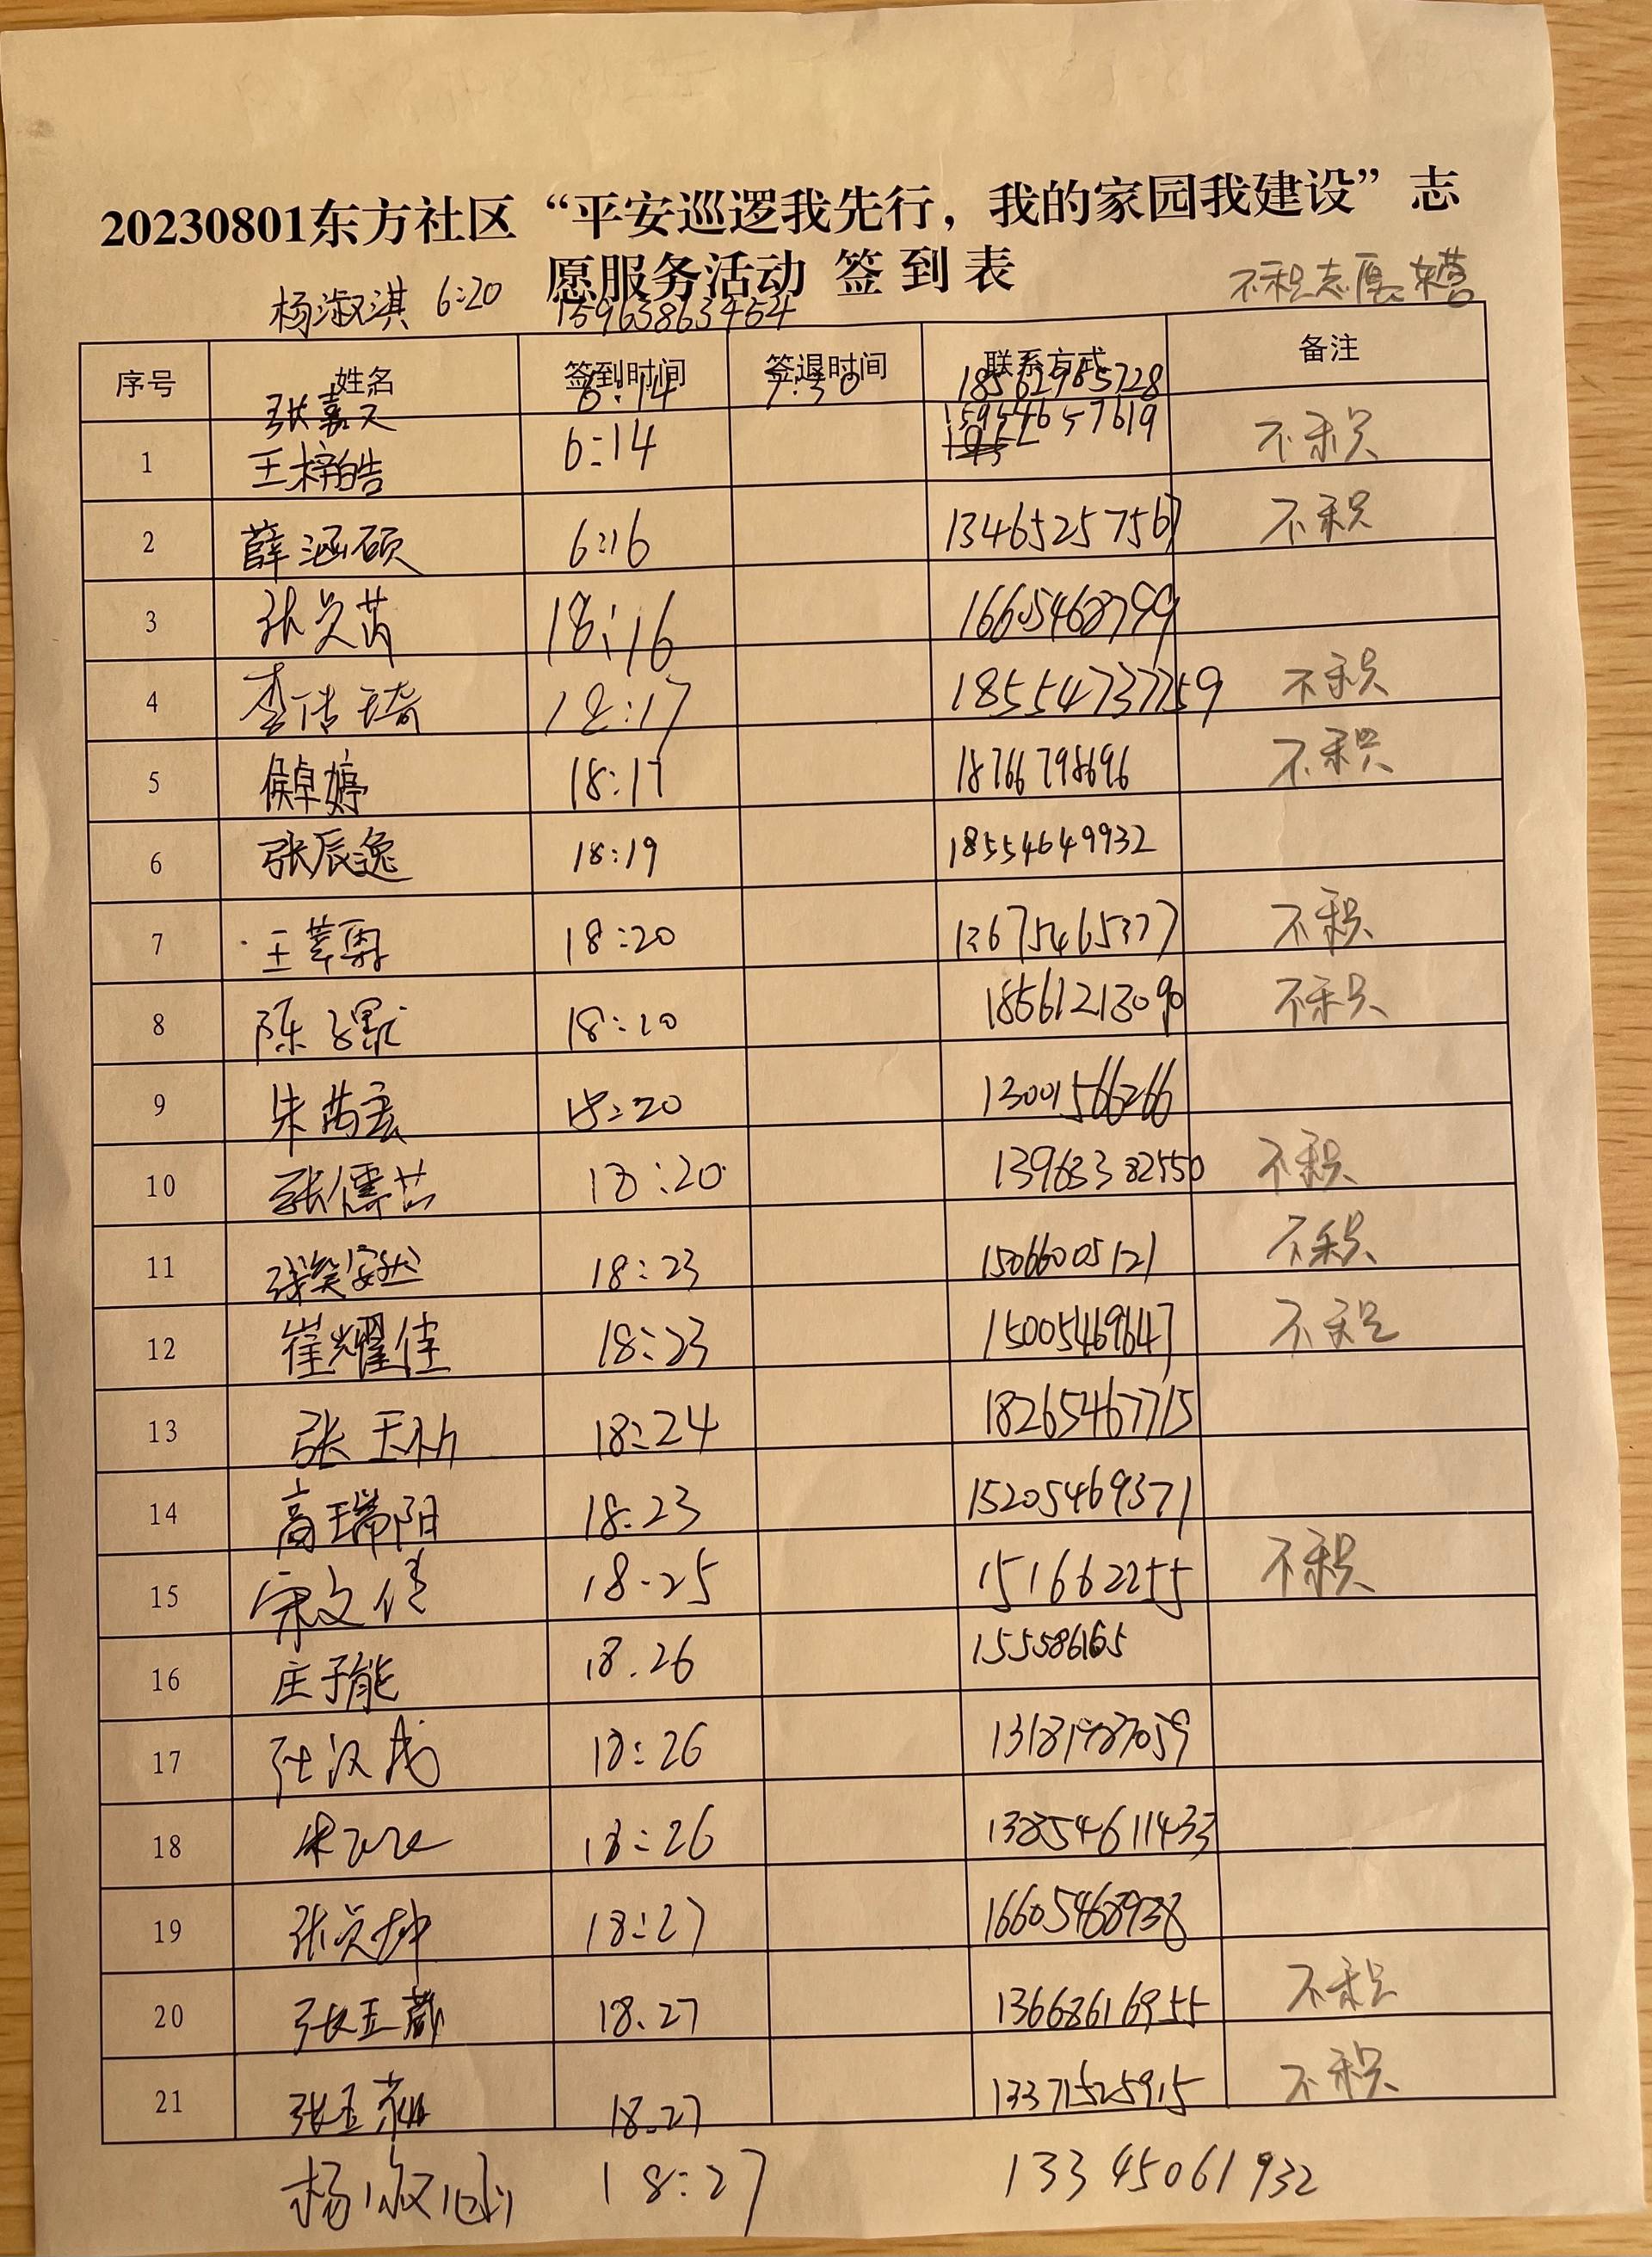 20230801东方社区“平安巡逻我先行，我的家园我建设”志
愿服务活动 签到表
杨淑淇 6:20 15963863454 不积志愿
序号 姓名 签到时间 签退时间 联系方式 备注
张嘉 6:14 7:30 18562965728
15954657619
1 王梓皓 6:14 不积
2 薛涵硕 6:16 13465257567 不积
3 张 芮 18:16 16605468799
4 李 琦 18:17 18554737759 不积
5 侯卓婷 18:17 18766798696 不积
6 张辰逸 18:19 18554649932
7 王 18:20 13675465377 不积
8 陈 18:20 18561213090 不积
9 朱芮 18:20 13001566266
10 张儒芸 18:20 13963382550 不积
11 安然 18:23 15066005121 不积
12 崔耀佳 18:23 15005469647 不积
13 张 18:24 18265467715
14 高瑞阳 18:23 15205469371
15 宋文佳 18.25 151662255 不积
16 庄子能 18.26 155586165
17 张汉成 18:26
18 朱 18:26 13854611433
19 张 坤 18:27 16605468938
20 张玉葳 18.27 13668616955 不积
21 张玉 18.27 13371525915 不积
杨淑 18:27 13345061932